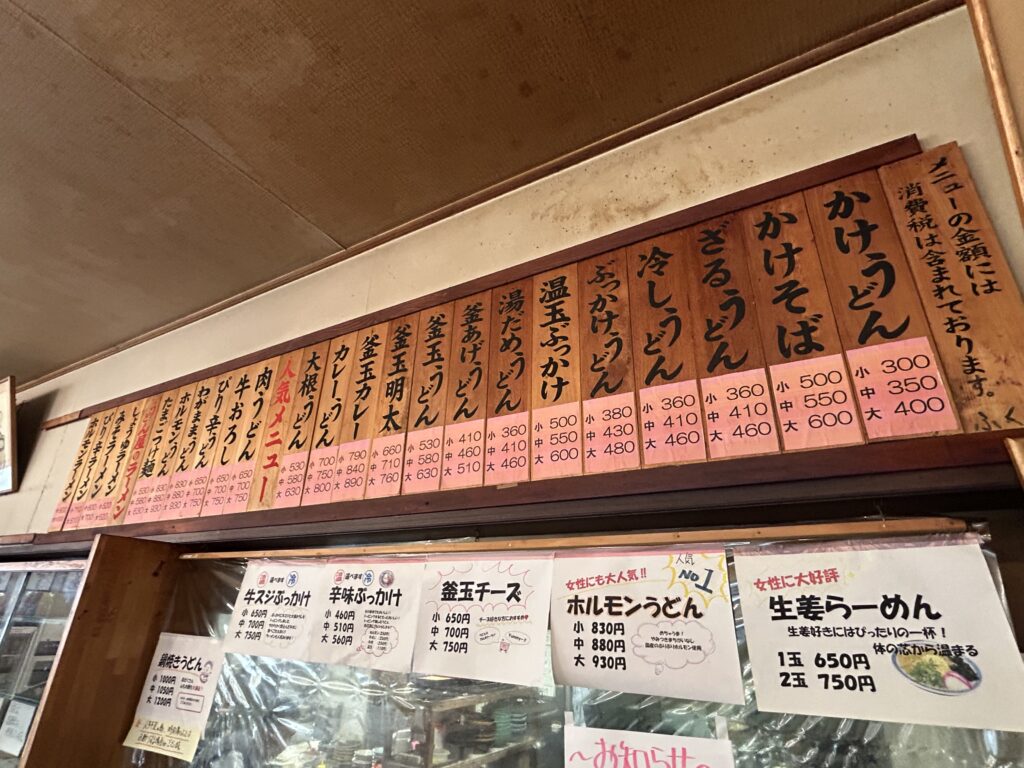 メニューの金額には
消費税は含まれております。
ふく
かけうどん
小 300
中 350
大 400
かけそば
小 500
中 550
大 600
ざるうどん
小 360
中 410
大 460
冷しうどん
小 360
中 410
大 460
ぶっかけうどん
小 380
中 430
大 480
温玉ぶっかけ
小 500
中 550
大 600
湯だめうどん
小 360
中 410
大 460
釜あげうどん
小 410
中 460
大 510
釜玉うどん
小 530
中 580
大 630
釜玉明太
小 660
中 710
大 760
釜玉カレー
小 790
中 840
大 890
カレーうどん
小 700
中 750
大 800
大根うどん
小 530
中 580
大 630
人気メニュー
肉うどん
小 650
中 700
大 750
牛おろし
小 650
中 700
大 750
ぴり辛うどん
わかままうどん
ホルモンうどん
小 830
中 880
大 930
たまごつけ麺
小 530
中 580
大 630
うどん屋のラーメン
しょうゆラーメン
みそラーメン
ぴり辛ラーメン
ホルモンラーメン
鍋焼きうどん
小 1000円
中 1050円
大 1200円
温 選べます 冷
牛スジぶっかけ
小 650円
中 700円
大 750円
温 選べます 冷
辛味ぶっかけ
小 460円
中 510円
大 560円
釜玉チーズ
小 650円
中 700円
大 750円
チーズ好きな方におすすめ
女性にも大人気!!
人気
NO1
ホルモンうどん
小 830円
中 880円
大 930円
めちゃうま!
やみつきまちがいなし
国産のぷりぷりホルモン使用
女性に大好評
生姜らーめん
生姜好きにはぴったりの一杯!
体の芯から温まる
1玉 650円
2玉 750円
~お知らせ~